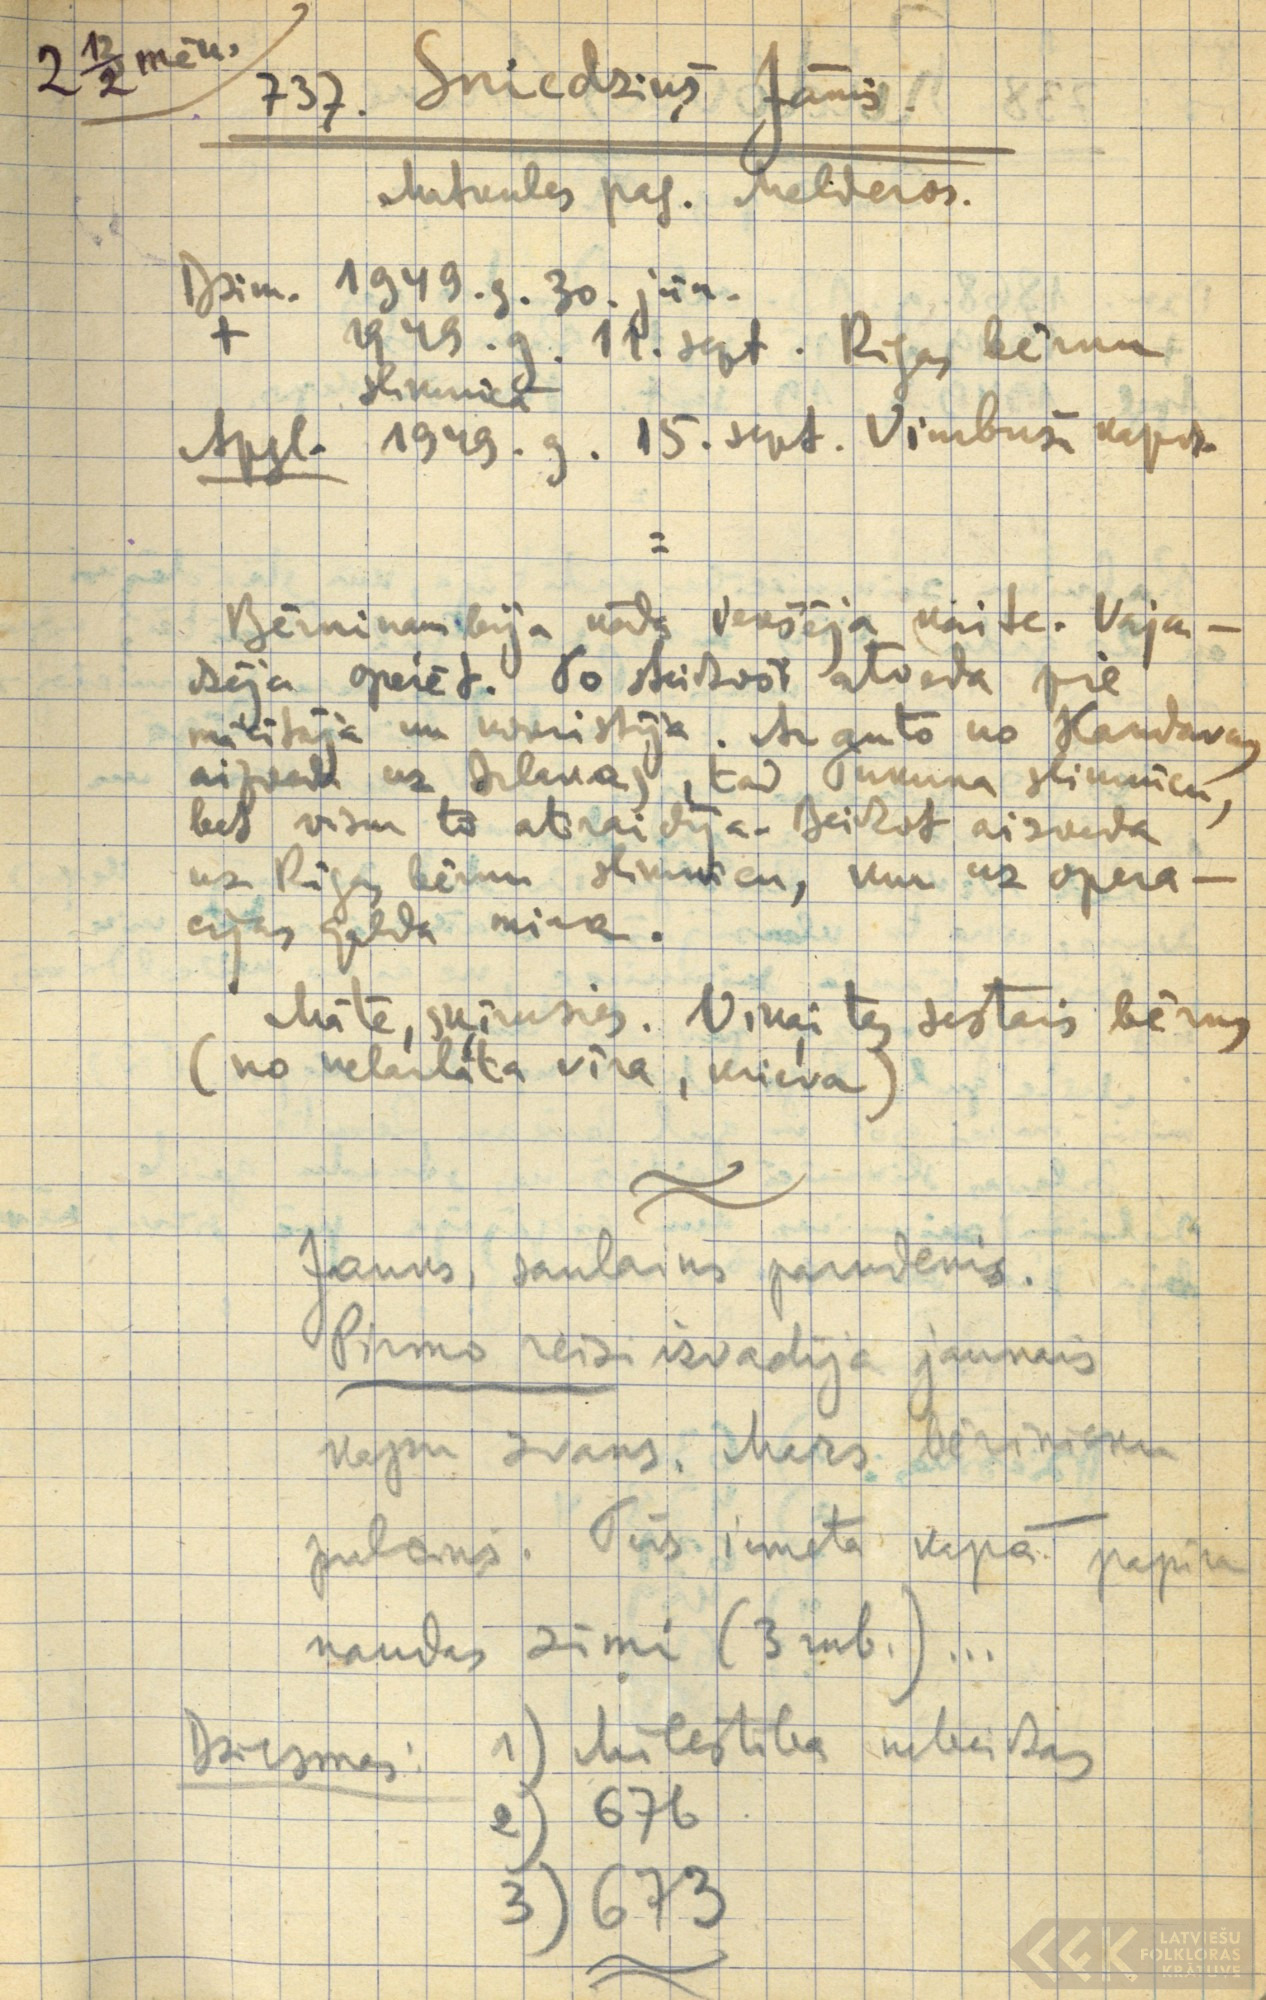 2 12/2 mēn.
737. Sniedziņš Jānis.
Matkules pag. Melderos.
Dzim. 1949. g. 30. jūn.
+ 1949. g. 11. sept. Rīgas bērnu
slimnīcā
Apgl. 1949. g. 15. sept. Vimbušu kapos.
=
Bērniņam bija kāda iekšēja kaite. Vaja-
dzēja operēt. To steidzoši atveda pie
mācītāja un kristīja. Ar auto no Kandavas
aizveda uz , tad Tukuma slimnīcu,
bet visur to atraidīja. Beidzot aizveda
uz Rīgas bērnu slimnīcu, kur uz opera-
cijas galda mira.
Māte, šķīrusies. Viņai tas sestais bērns
(no nelaulāta vīra, krieva)
Jauks, saulains parudenis.
Pirmo reizi izvadīja jaunais
kapu zvans. Mazs bērinieku
pulciņš. Tēvs iemeta kapā papīra
naudas zīmi (3 rub.)...
Dziesmas: 1) Mīlestība nebeidzas
2) 676
3) 673
LATVIEŠU
FOLKLORAS
KRĀTUVE